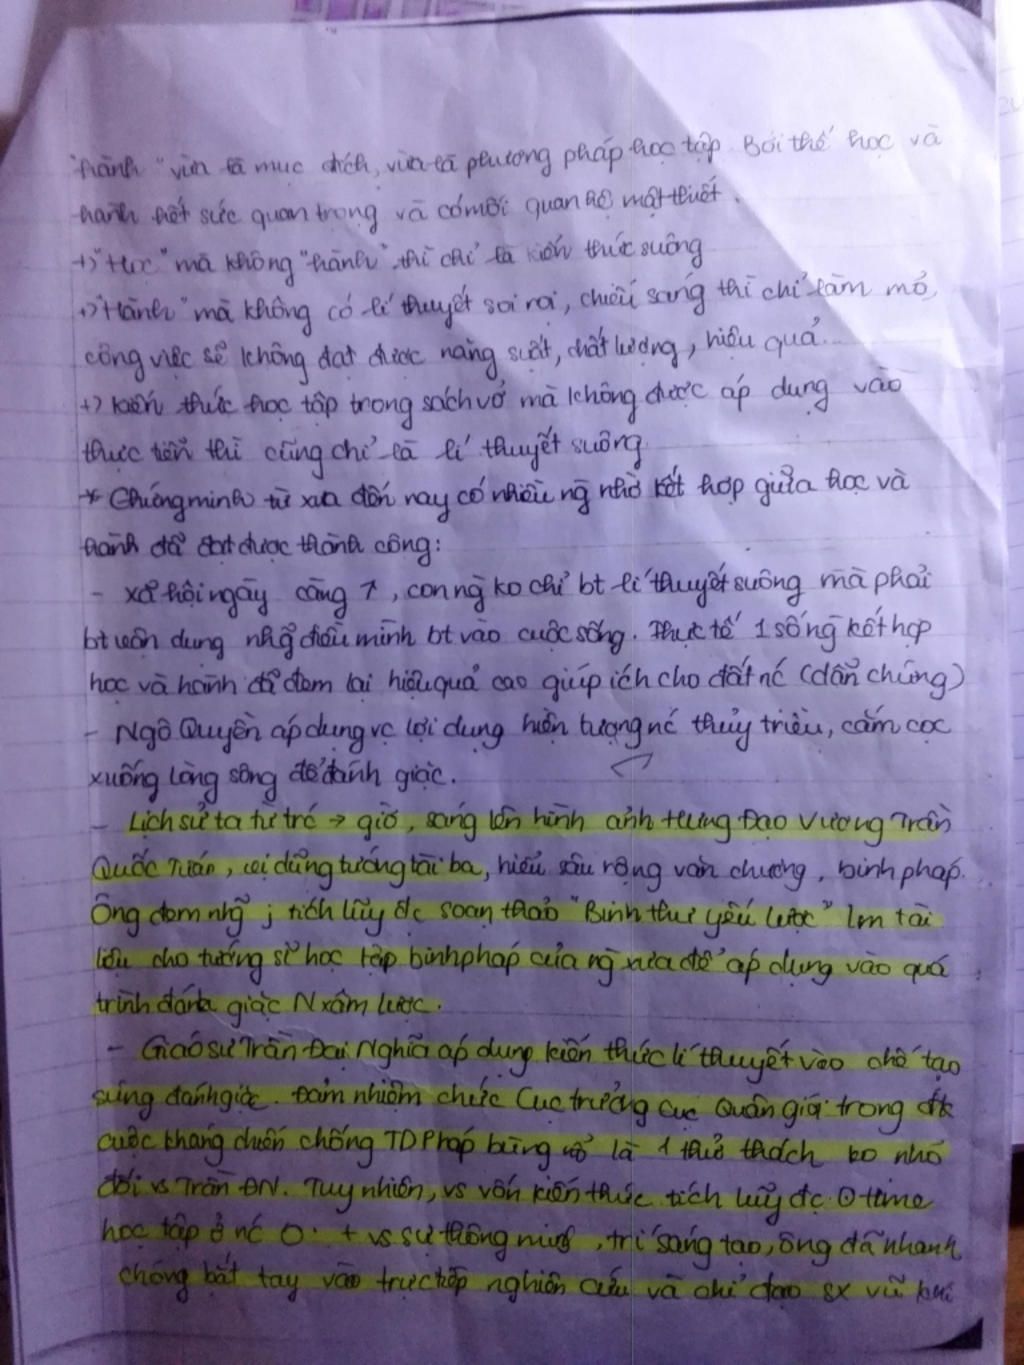 "hành" vừa là mục đích, vừa là phương pháp học tập. Bởi thế học và
hành hết sức quan trọng và có mối quan hệ mật thiết.
+) "Học" mà không "hành" thì chỉ là kiến thức suông
+) "Hành" mà không có lí thuyết soi rọi, chiếu sáng thì chỉ làm mò,
công việc sẽ không đạt được năng suất, chất lượng, hiệu quả...
+) Kiến thức học tập trong sách vở mà không được áp dụng vào
thực tiễn thì cũng chỉ là lí thuyết suông
* Chứng minh từ xưa đến nay có nhiều ng nhờ kết hợp giữa học và
hành để đạt được thành công:
- Xã hội ngày càng ↑, con ng ko chỉ bt lí thuyết suông mà phải
bt vận dụng nhg điều mình bt vào cuộc sống. Thực tế 1 số ng kết hợp
học và hành đã đem lại hiệu quả cao giúp ích cho đất nc (dẫn chứng)
- Ngô Quyền áp dụng vc lợi dụng hiện tượng nc thủy triều, cắm cọc
xuống lòng sông để đánh giặc.
- Lịch sử ta từ trc → giờ, sáng lên hình ảnh Hưng Đạo Vương Trần
Quốc Tuấn, dũng tướng tài ba, hiểu sâu rộng văn chương, binh pháp.
Ông đem nhg j tích lũy đc soạn thảo "Binh thư yếu lược" lm tài
liệu cho tướng sĩ học tập binh pháp của ng xưa để áp dụng vào quá
trình đánh giặc N xâm lược.
- Giáo sư Trần Đại Nghĩa áp dụng kiến thức lí thuyết vào chế tạo
súng đánh giặc. Đảm nhiệm chức Cục trưởng cục Quân giới trong đk
cuộc kháng chiến chống TD Pháp bùng nổ là 1 thử thách ko nhỏ
đối vs Trần ĐN. Tuy nhiên, vs vốn kiến thức tích lũy đc time
học tập ở nc + vs sự thông minh, trí sáng tạo, ông đã nhanh
chóng bắt tay vào trực tiếp nghiên cứu và chỉ đạo sx vũ khí